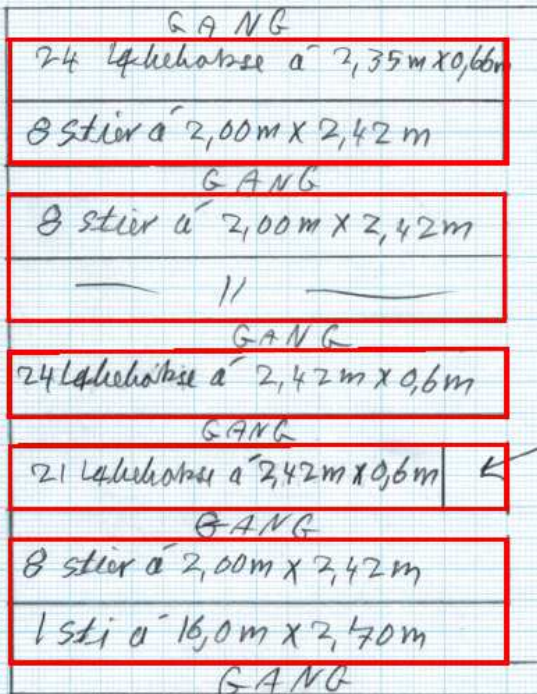 GANG
24 løbebokse á 2,35m x 0,66m
8 stier á 2,00m x 2,42m
GANG
8 stier á 2,00m x 2,42m
—— // ——
GANG
24 løbebokse á 2,42m x 0,6m
GANG
21 løbebokse á 2,42m x 0,6m
GANG
8 stier á 2,00m x 2,42m
1 sti á 16,0m x 2,70m
GANG